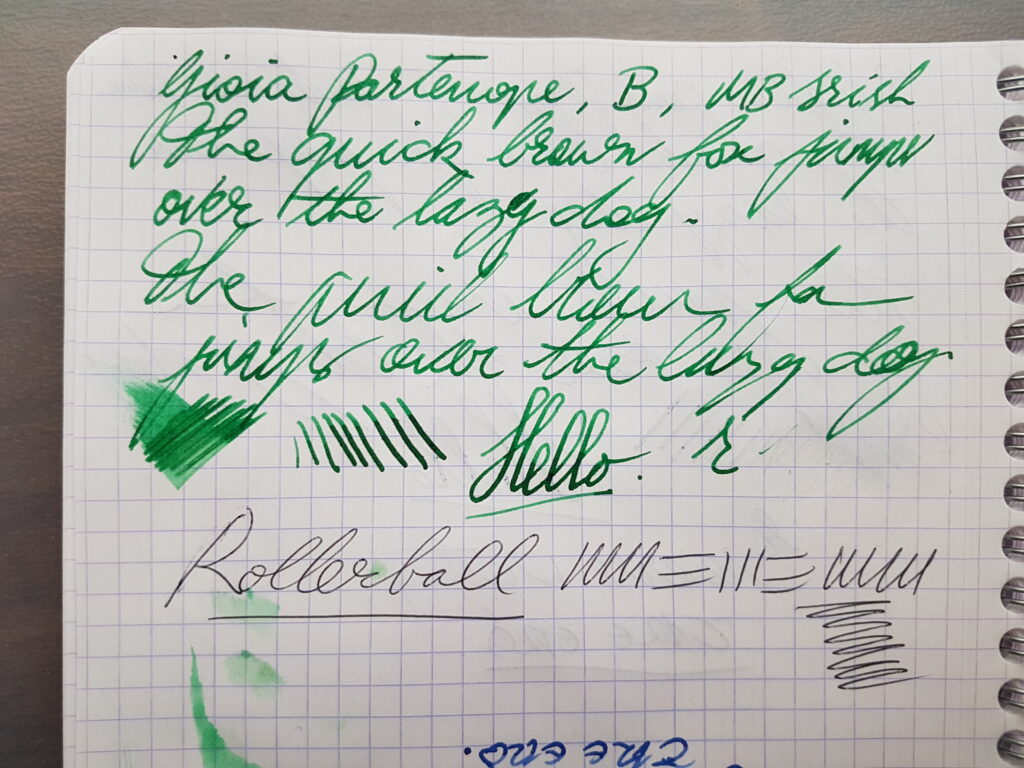 Gioia Partenope, B, MB Irish
The quick brown fox jumps
over the lazy dog.
The quick brown fox
jumps over the lazy dog.
Hello. r.
Rollerball
The end.